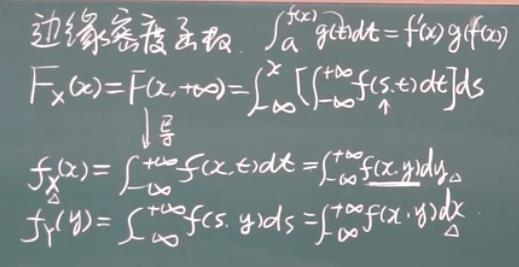 边缘密度函数. ∫_a^{f(x)} g(t)dt = f'(x) g(f(x))
F_X(x) = F(x, +∞) = ∫_{-∞}^{x} [∫_{-∞}^{+∞} f(s,t)dt]ds
↓导 ↑
f_X(x) = ∫_{-∞}^{+∞} f(x,t)dt = ∫_{-∞}^{+∞} f(x,y)dy
f_Y(y) = ∫_{-∞}^{+∞} f(s,y)ds = ∫_{-∞}^{+∞} f(x,y)dx